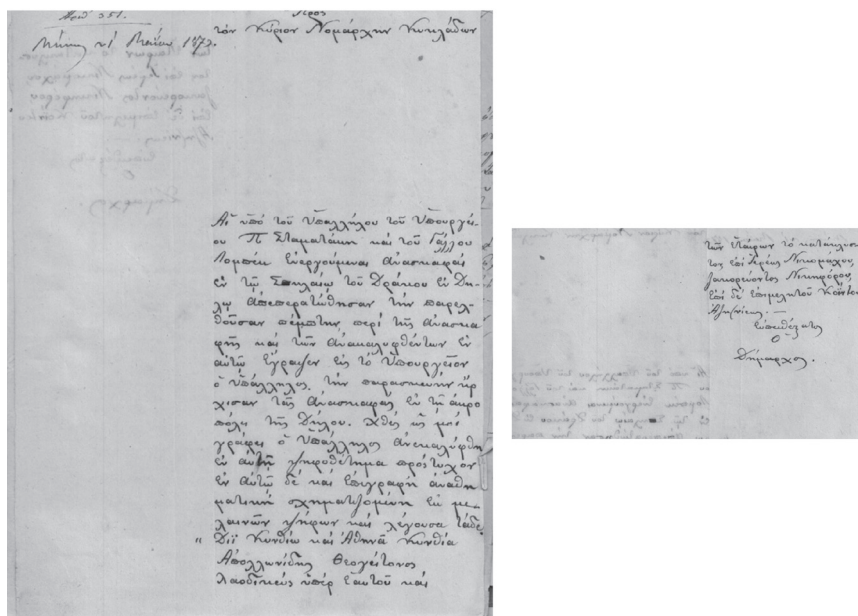 Ἀριθ 351.
Πρὸς
τὸν Κύριον Νομάρχην Κυκλάδων
Αἱ ὑπὸ τοῦ Ὑπαλλήλου τοῦ Ὑπουργεί-
ου Π Σταματάκη καὶ τοῦ Γάλλου
Λομπὲκ ἐνεργούμεναι ἀνασκαφαὶ
ἐν τῷ Σπηλαίῳ τοῦ Δράκου ἐν Δη-
λῳ ἀπεπερατώθησαν τὴν παρελ-
θοῦσαν πέμπτην, περὶ τῆς ἀνασκα
φῆς καὶ τῶν ἀνακαλυφθέντων ἐν
αὐτῷ ἔγραψεν εἰς τὸ Ὑπουργεῖον
ὁ ὑπάλληλος, τὴν παρασκευὴν ἤρ
χισαν τὰς ἀνασκαφὰς ἐν τῇ ἀκρο
πόλει τῆς Δήλου. Χθὲς ὡς μοὶ
γράφει ὁ Ὑπάλληλος ἀνεκαλύφθη
ἐν αὐτῇ ψηφοθέτημα πρόστυχον
ἐν αὐτῷ δὲ καὶ ἐπιγραφὴ ἀναθη
ματικὴ σχηματιζομένη ἐκ με
λαινῶν ψήφων καὶ λέγουσα τάδε
" Διῒ Κυνθίῳ καὶ Ἀθηνᾷ Κυνθίᾳ
Ἀπολλωνίδης Θεογείτονος
Λαοδικεὺς ὑπὲρ ἑαυτοῦ καὶ
τῶν ἑταίρων τὸ κατάκλυσ
τον, ἐπὶ Ἱερέως Νικομάχου,
ζακορεύοντος Νικηφόρου,
ἐπὶ δὲ ἐπιμελητοῦ Κοΐντου
Ἀζηνιέως. —
Εὐπειθέστατος
Ὁ
Δήμαρχος.